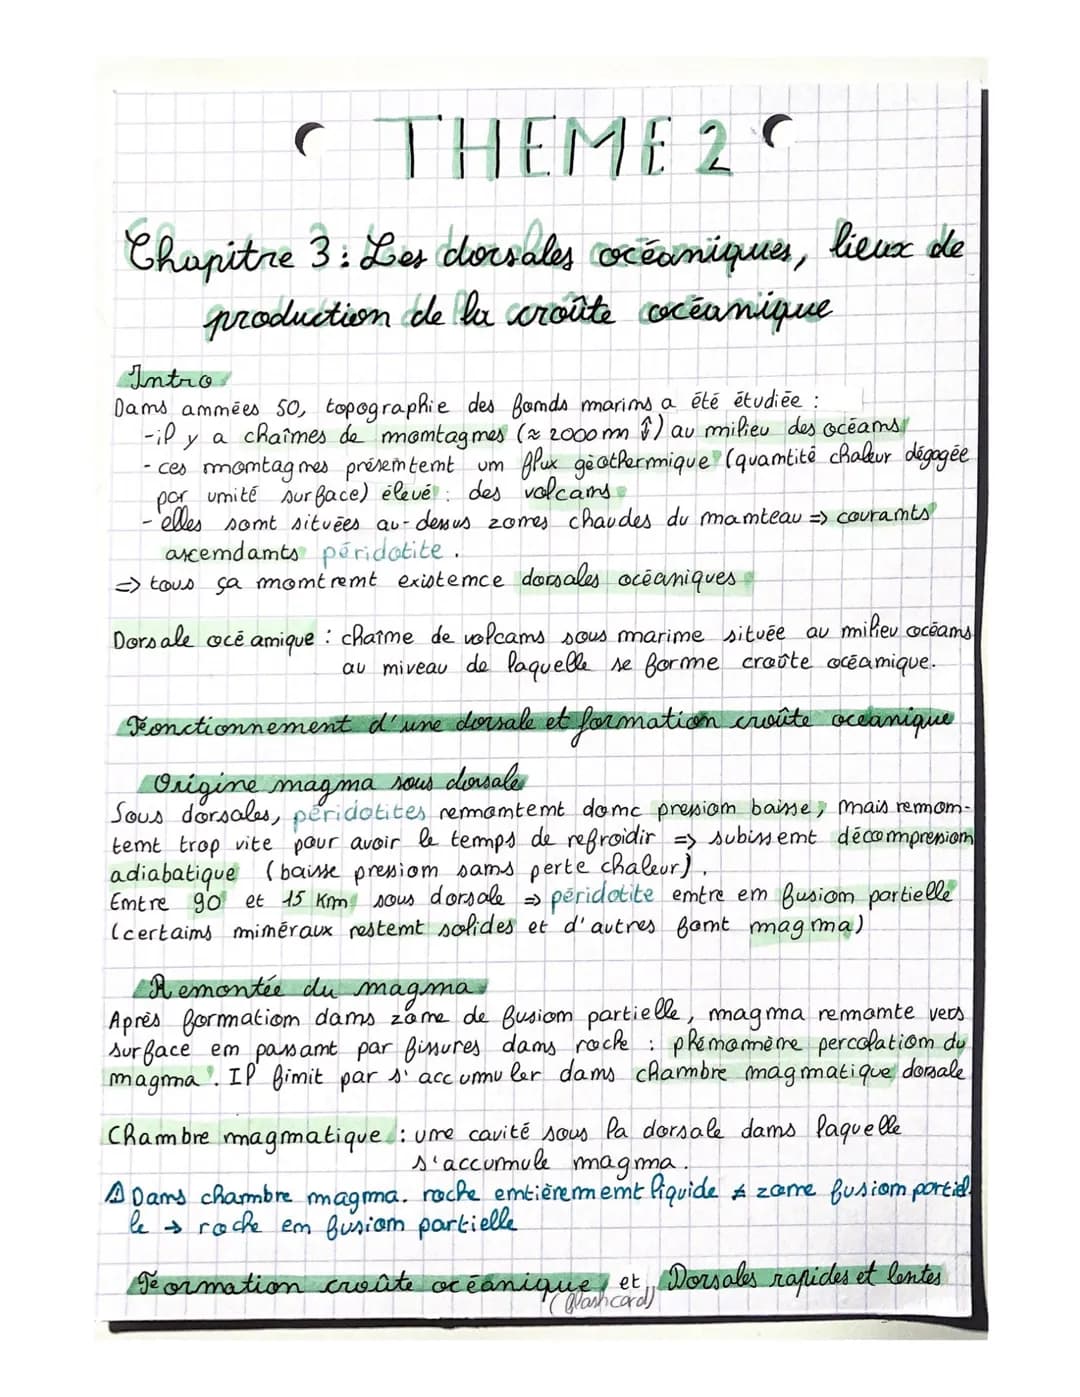 THEME 2
Chapitre 3 : Les dorsales océaniques, lieux de
production de la croûte océanique
Intro
Dans années 50, topographie des fonds marins a été étudiée :
- il y a chaînes de montagnes (≈ 2000 m ⇕) au milieu des océans
- ces montagnes présentent un flux géothermique (quantité chaleur dégagée
par unité surface) élevé : des volcans
- elles sont situées au-dessus zones chaudes du manteau => courants
ascendants péridotite.
=> tous ça montrent existence dorsales océaniques
Dorsale océanique : chaîne de volcans sous marine située au milieu océans
au niveau de laquelle se forme croûte océanique.
Fonctionnement d'une dorsale et formation croûte océanique
Origine magma sous dorsale
Sous dorsales, péridotites remontent donc pression baisse, mais remon-
tent trop vite pour avoir le temps de refroidir => subissent décompression
adiabatique (baisse pression sans perte chaleur).
Entre 90 et 15 Km sous dorsale => péridotite entre en fusion partielle
(certains minéraux restent solides et d'autres font magma)
Remontée du magma
Après formation dans zone de fusion partielle, magma remonte vers
surface en passant par fissures dans roche : phénomène percolation du
magma. Il finit par s'accumuler dans chambre magmatique dorsale
Chambre magmatique : une cavité sous la dorsale dans laquelle
s'accumule magma.
⚠ Dans chambre magma. roche entièrement liquide ≠ zone fusion partiel-
le → roche en fusion partielle
Formation croûte océanique et Dorsales rapides et lentes
(flashcard)